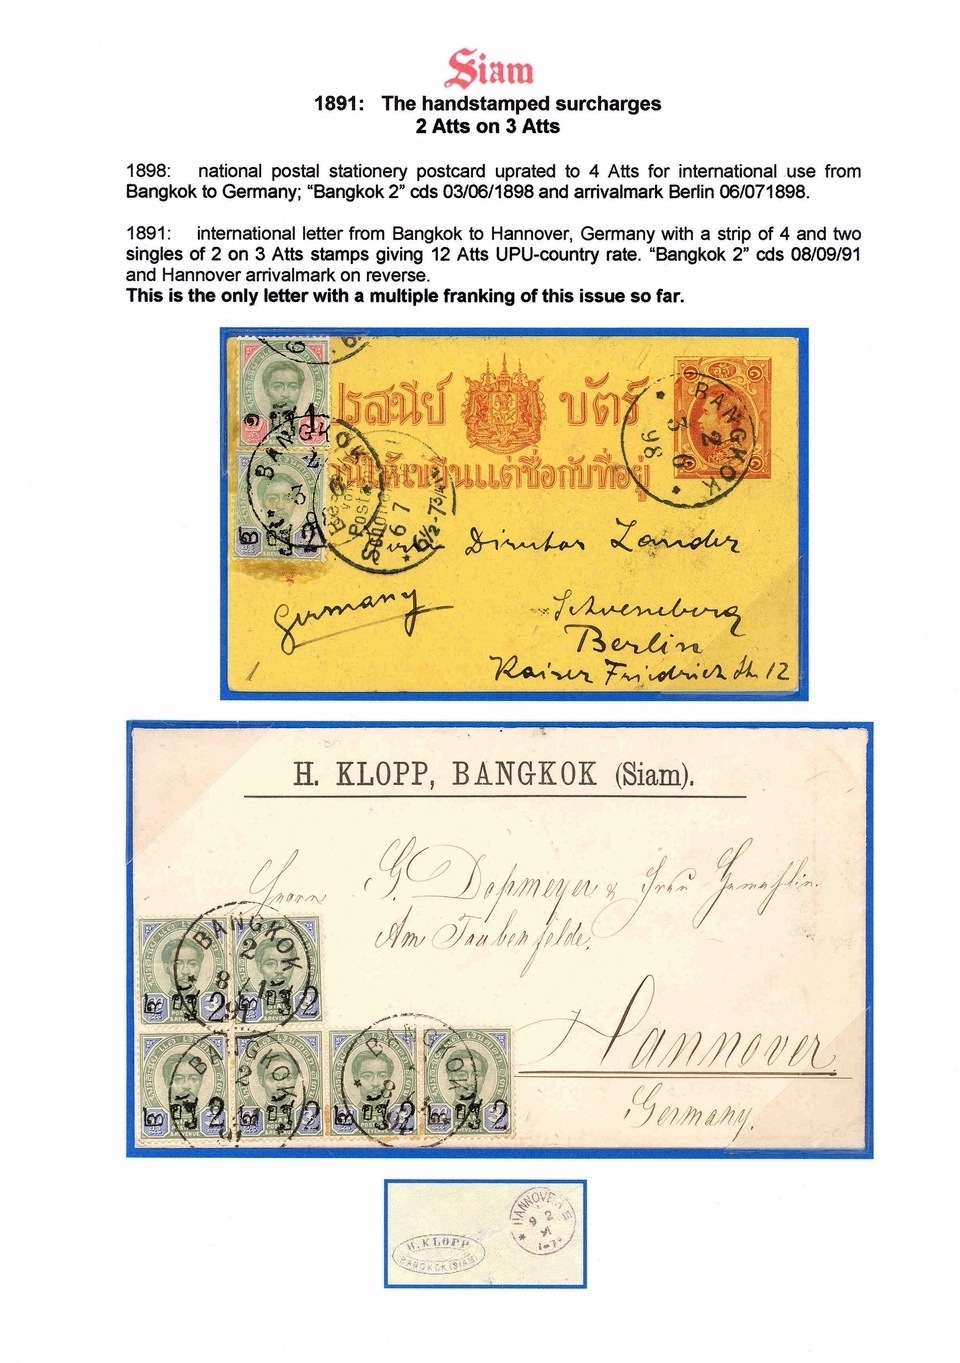 Siam
1891: The handstamped surcharges
2 Atts on 3 Atts
1898: national postal stationery postcard uprated to 4 Atts for international use from
Bangkok to Germany; “Bangkok 2” cds 03/06/1898 and arrivalmark Berlin 06/071898.
1891: international letter from Bangkok to Hannover, Germany with a strip of 4 and two
singles of 2 on 3 Atts stamps giving 12 Atts UPU-country rate. “Bangkok 2” cds 08/09/91
and Hannover arrivalmark on reverse.
This is the only letter with a multiple franking of this issue so far.
ไปรสนีย์ บัตร์
เขียนให้ชัดเจนแต่ชื่อกับที่อยู่
BANGKOK
2
3 6
98
BANGKOK
2
3
Director Lander
Germany
Schoeneberg
Berlin
Kaiser Friedrich Str 12
H. KLOPP, BANGKOK (Siam).
Herrn G. Dopmeyer & Frau Gemahlin.
Am Taubenfelde.
Hannover
Germany.
BANGKOK
2
8
91
๒ อัฐ 2 ๒ อัฐ 2
BANGKOK
2
BANGKOK
8
๒ อัฐ 2 ๒ อัฐ 2 ๒ อัฐ 2 ๒ อัฐ 2
HANNOVER
9 2
H. KLOPP
BANGKOK (SIAM)